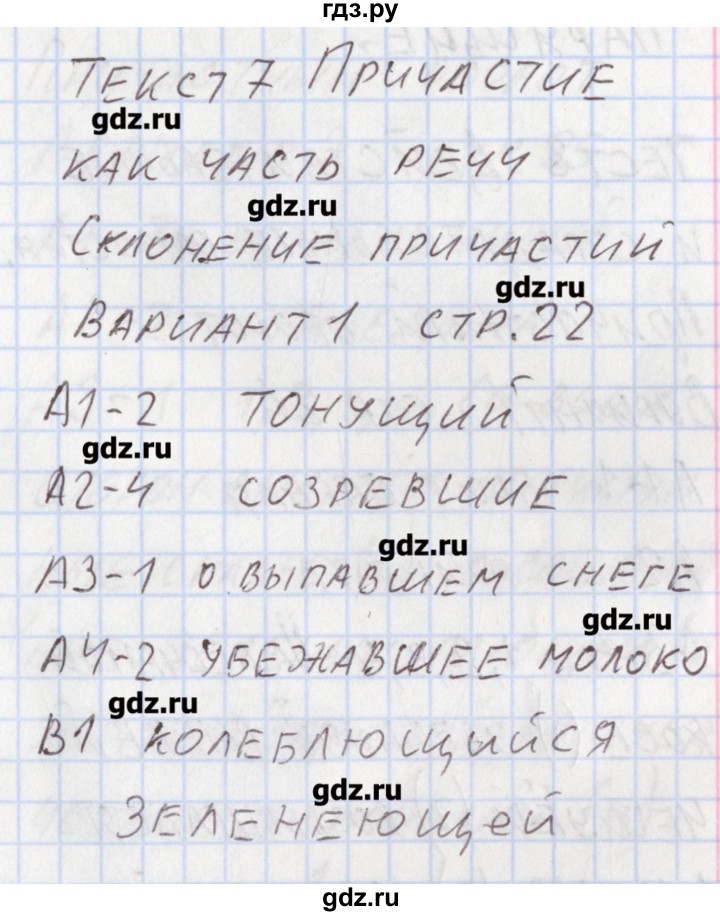 гдз.ру
ТЕКСТ 7 ПРИЧАСТИЕ
gdz.ru
КАК ЧАСТЬ РЕЧИ
gdz.ru
СКЛОНЕНИЕ ПРИЧАСТИЙ
gdz.ru
ВАРИАНТ 1 СТР. 22
А1-2 ТОНУЩИЙ
gdz.ru
А2-4 СОЗРЕВШИЕ
gdz.ru
А3-1 О ВЫПАВШЕМ СНЕГЕ
gdz.ru
А4-2 УБЕЖАВШЕЕ МОЛОКО
gdz.ru
В1 КОЛЕБЛЮЩИЙСЯ
gdz.ru
ЗЕЛЕНЕЮЩЕЙ
gdz.ru